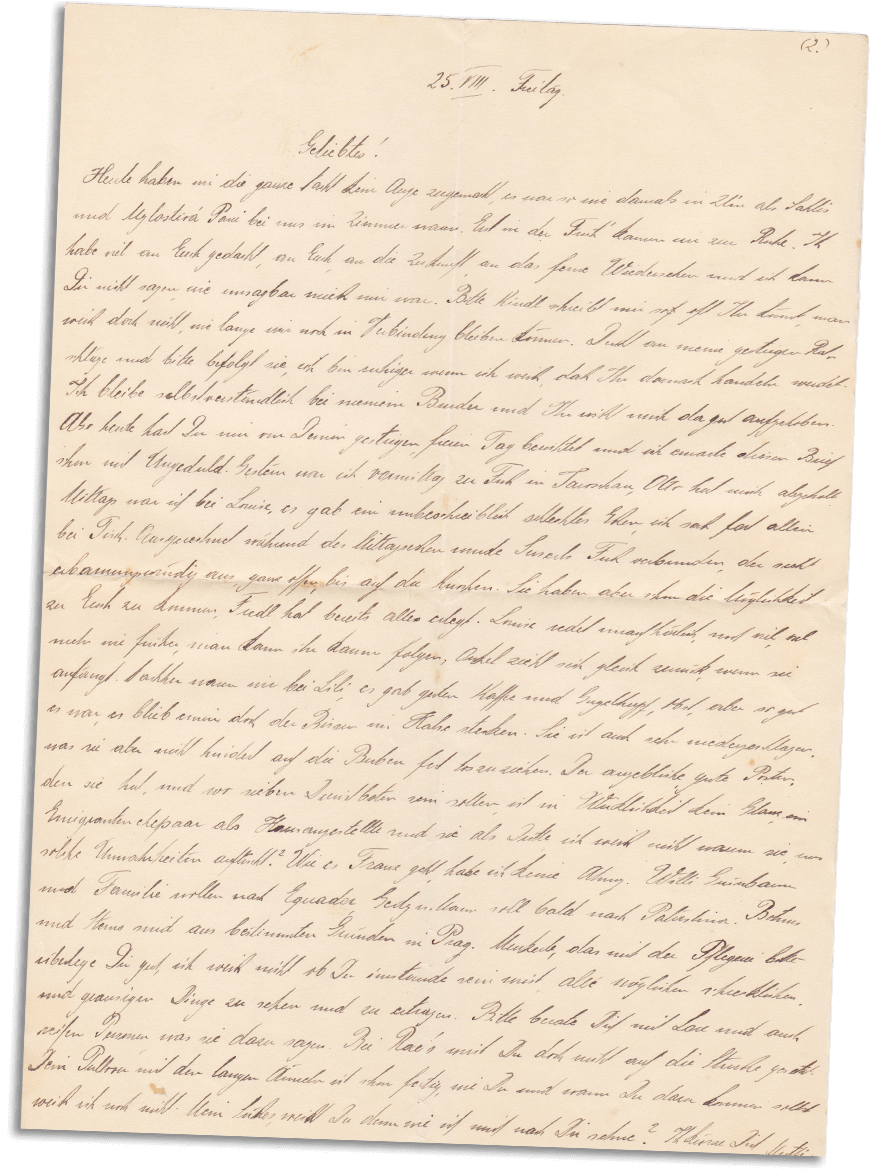 (2.)
25. VIII. Freitag.
Geliebtes!
Heute haben wir die ganze Nacht kein Auge zugemacht, es war so wie damals in Zlin als
und Paní bei uns im Zimmer waren. Erst in der Früh kamen wir zur Ruhe. Ich
habe viel an Euch gedacht, an Euch, an die Zukunft, an das ferne Wiedersehen und ich kann
Dir nicht sagen, wie unsagbar mir war. Bitte Kindl schreibt mir so oft Ihr könnt, man
weiß doch nicht, wie lange wir noch in Verbindung bleiben können. Denkt an meine gestrigen Rat-
schläge und bitte befolgt sie, ich bin ruhiger wenn ich weiß, daß Ihr darnach handeln werdet.
Ich bleibe selbstverständlich bei meinem Bruder und Ihr wißt mich da gut aufgehoben.
Also heute hast Du mir von Deinem gestrigen, freien Tag berichtet und ich erwarte diesen Brief
schon mit Ungeduld. Gestern war ich vormittag zu Fuß in, Otto hat mich abgeholt
Mittags war ich bei Louise, es gab ein unbeschreiblich schlechtes Essen, ich saß fast allein
bei Tisch. Ausgerechnet während des Mittagessens wurde Fuß verbunden, der sieht
erbarmungswürdig aus, ganz offen, bis auf die Knochen. Sie haben aber schon die Möglichkeit
zu Euch zu kommen, Friedl hat bereits alles erlegt. Louise redet unaufhörlich, noch viel, viel
mehr wie früher, man kann ihr kaum folgen, Onkel zieht sich gleich zurück, wenn sie
anfängt. Nachher waren wir bei Lili, es gab guten Kaffee und Gugelhupf, Obst, aber so gut
es war, es blieb einem doch der Bissen im Halse stecken. Sie ist auch sehr niedergeschlagen,
was sie aber nicht hindert auf die Buben fest loszuziehen. Der angebliche, gute Posten,
den sie hat, und wo sieben Dienstboten sein sollen, ist in Wirklichkeit kein Glanz, ein
Emigrantenehepaar als Hausangestellte und sie als Dritte ich weiß nicht warum sie uns
solche Unwahrheiten auftischt? Wie es Franz geht, habe ich keine Ahnung. Willi Grünbaum
und Familie wollen nach Equador soll bald nach Palästina.
und sind aus bestimmten Gründen in Prag. das mit der Pflegerin bitte
überlege Dir gut, ich weiß nicht ob Du imstande sein wirst, alle möglichen schrecklichen,
und grausigen Dinge zu sehen und zu ertragen. Bitte berate Dich mit und auch
weisen Personen was sie dazu sagen. Bei wirst Du doch nicht auf die gesetzt.
Dein Pullover mit den langen Ärmeln ist schon fertig, wie Du und wann Du dazu kommen sollst
weiß ich noch nicht. Mein liebes, weißt Du denn wie ich mich nach Dir sehne? Ich küsse Dich Mutti